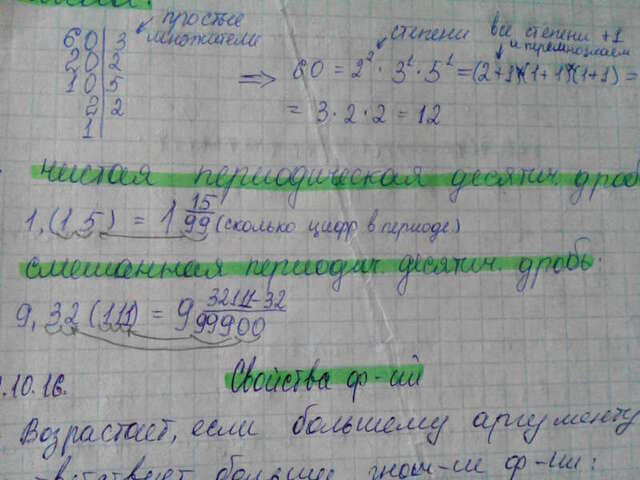 простые
множатели
60 | 3
20 | 2
10 | 5
2 | 2
1
степени
все степени +1
и перемножаем
⇒ 60 = 2² · 3¹ · 5¹ = (2+1)(1+1)(1+1) =
= 3 · 2 · 2 = 12
чистая периодическая десятич. дроб
1,(15) = 1 15/99 (сколько цифр в периоде)
смешанная периодич. десятич. дробь:
9,32(111) = 9 32111-32/99900
.10.16.
Свойства ф-ий
Возрастает, если большему аргументу